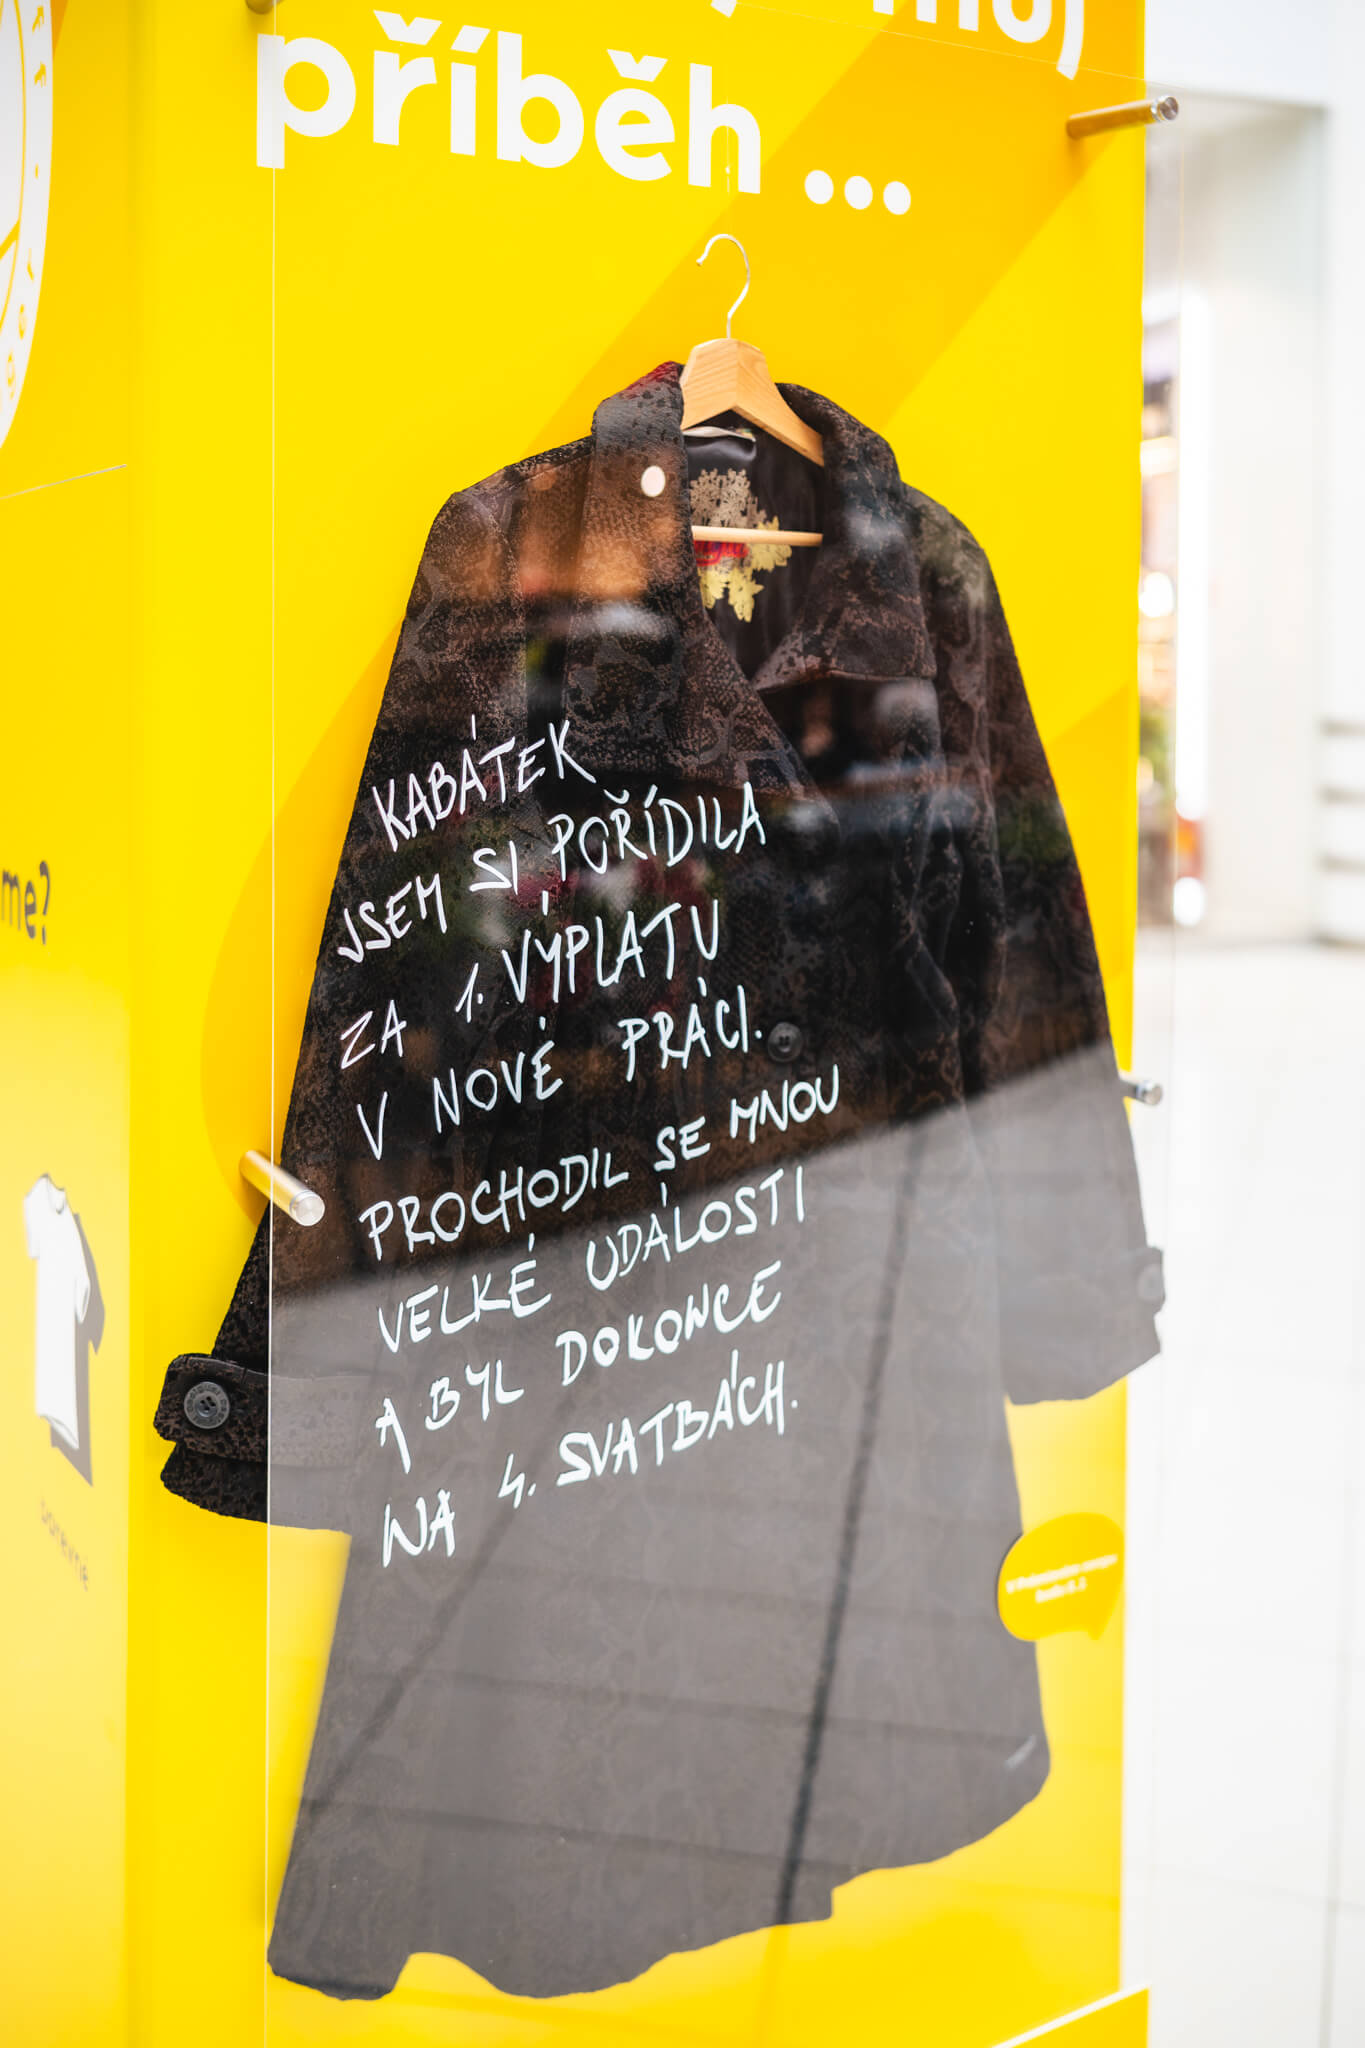 můj
příběh ...
KABÁTEK
JSEM SI POŘÍDILA
ZA 1. VÝPLATU
V NOVÉ PRÁCI.
PROCHODIL SE MNOU
VELKÉ UDÁLOSTI
A BYL DOKONCE
NA 4. SVATBÁCH.
me?